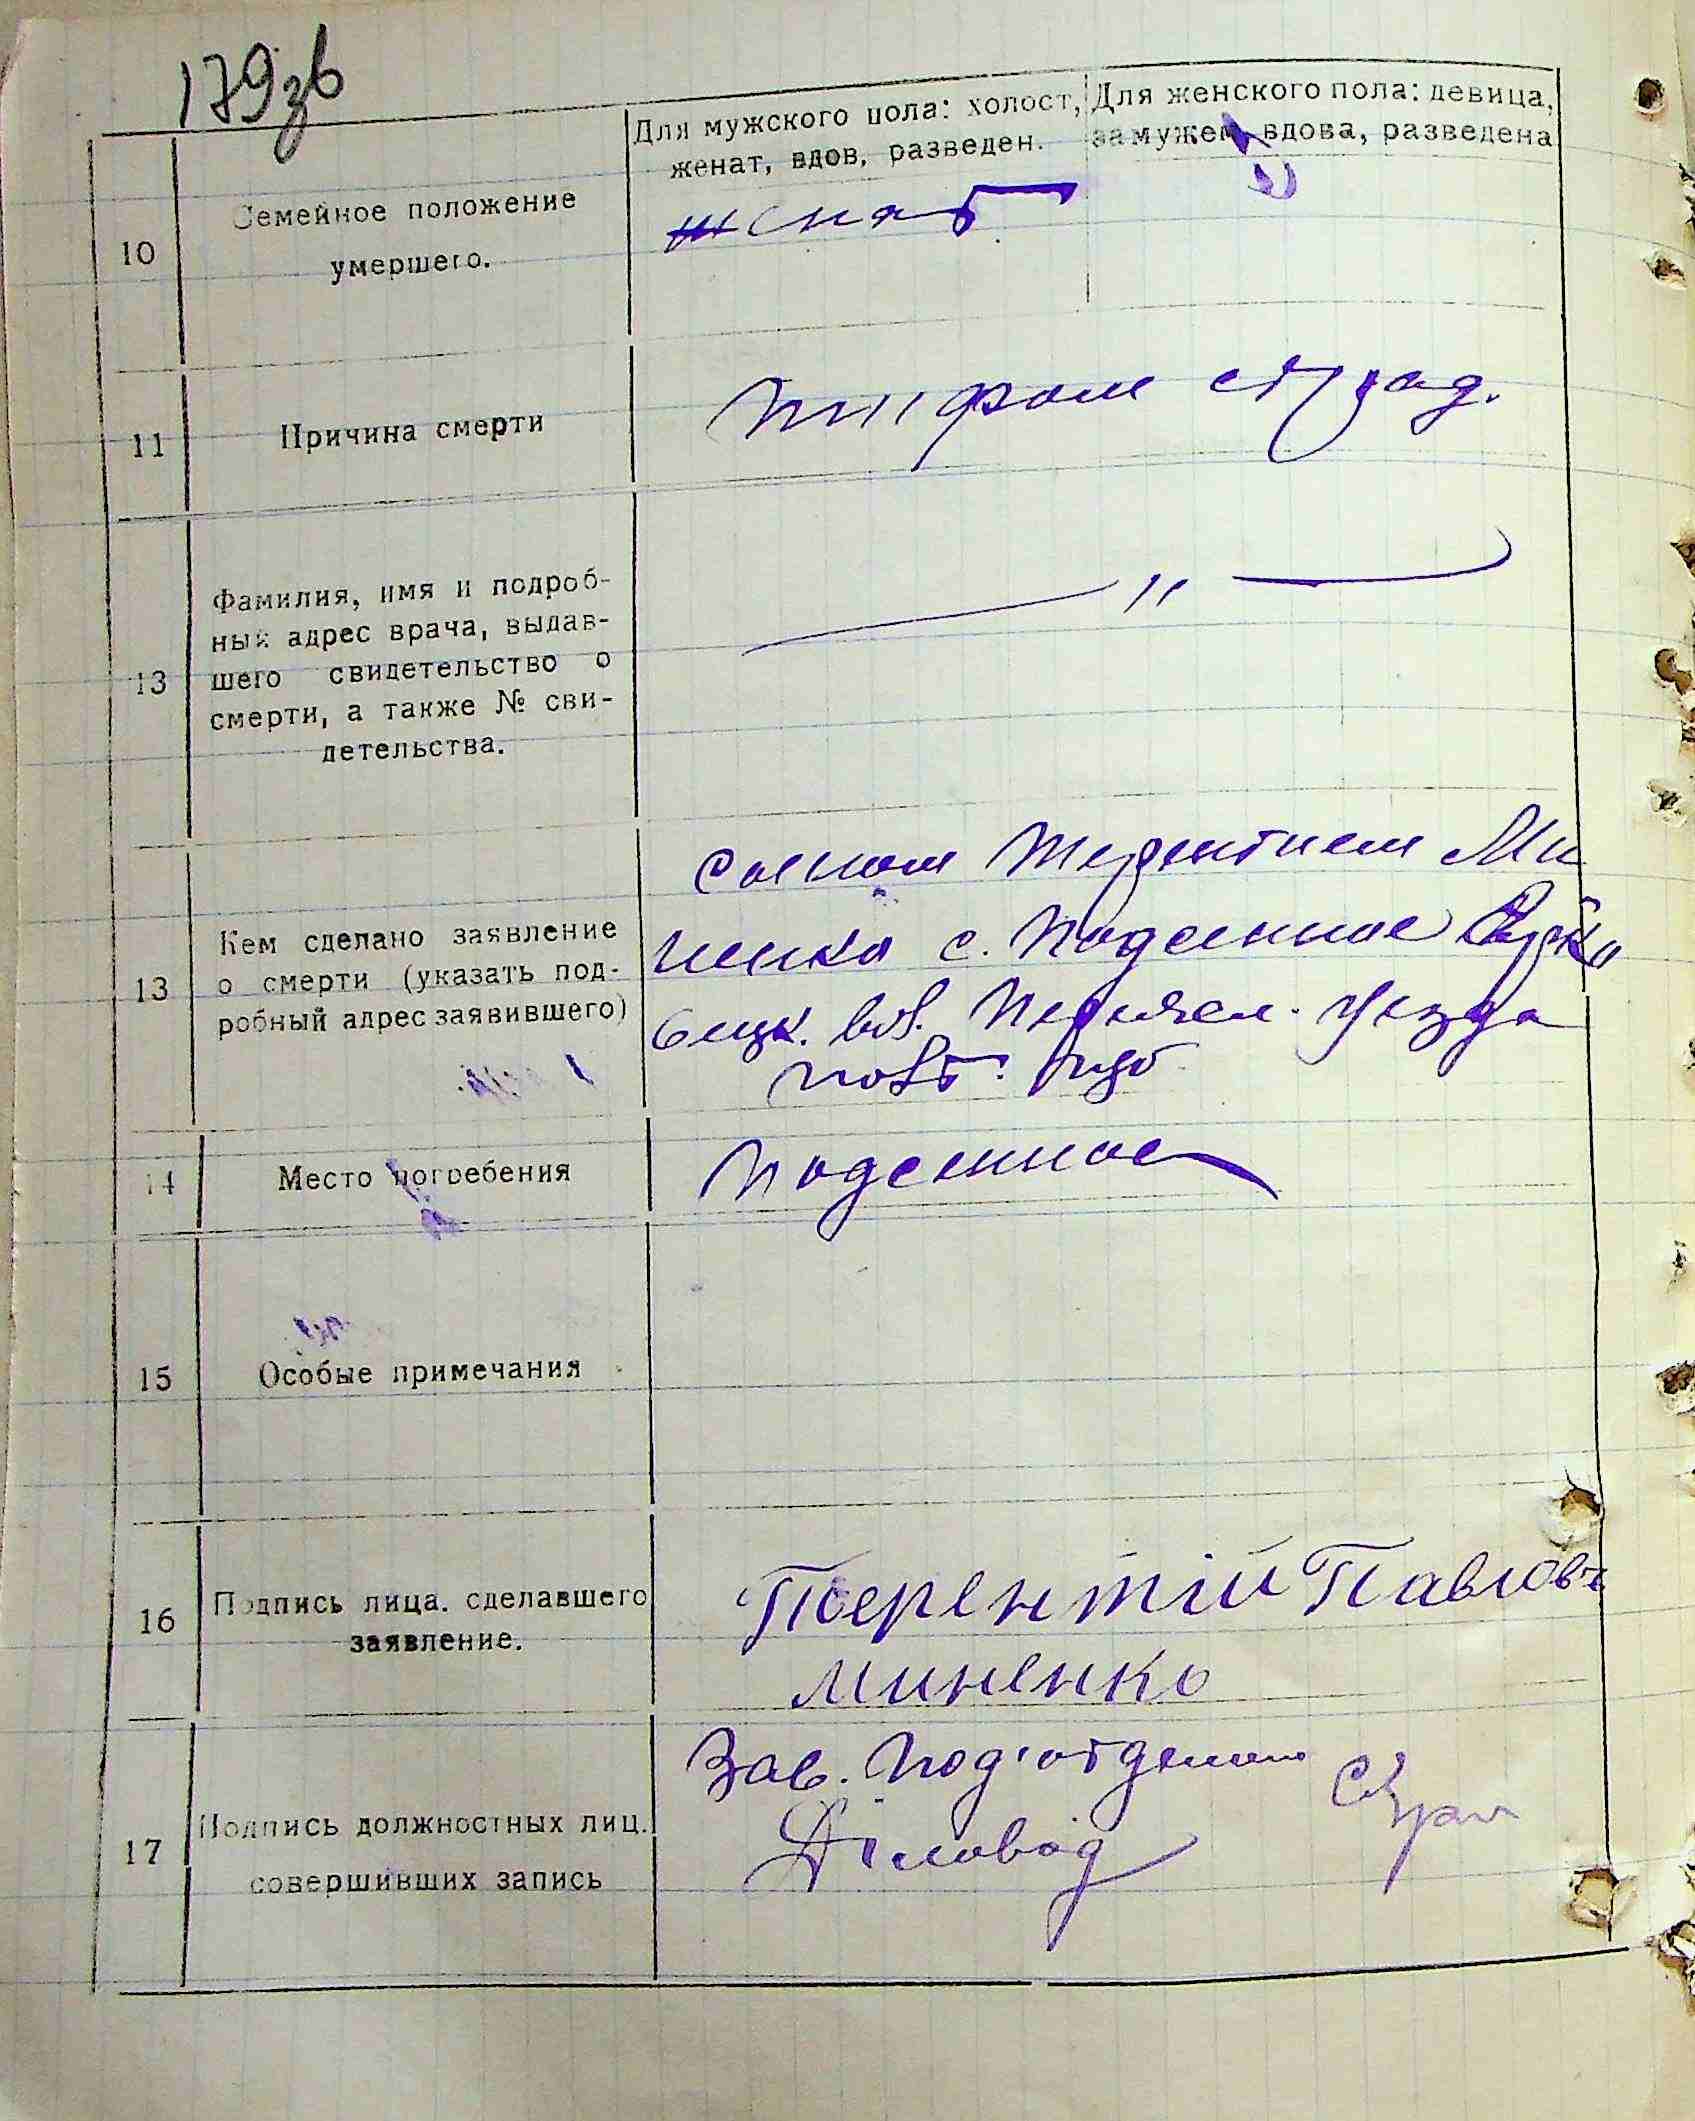 179зв
Для мужского пола: холост,
женат, вдов, разведен.
Для женского пола: девица,
замужем, вдова, разведена
10
Семейное положение
умершего.
женат
11
Причина смерти
тифом страд.
13
Фамилия, имя и подроб-
ный адрес врача, выдав-
шего свидетельство о
смерти, а также № сви-
детельства.
— " —
13
Кем сделано заявление
о смерти (указать под-
робный адрес заявившего)
сыном Терентием Ми
ненко с. Подсенное
вол. уезда
14
Место погребения
Подсенное
15
Особые примечания
16
Подпись лица, сделавшего
заявление.
Терентій Павловъ
Миненко
17
Подпись должностных лиц.
совершивших запись
Зав. Под'отделом
Діловод